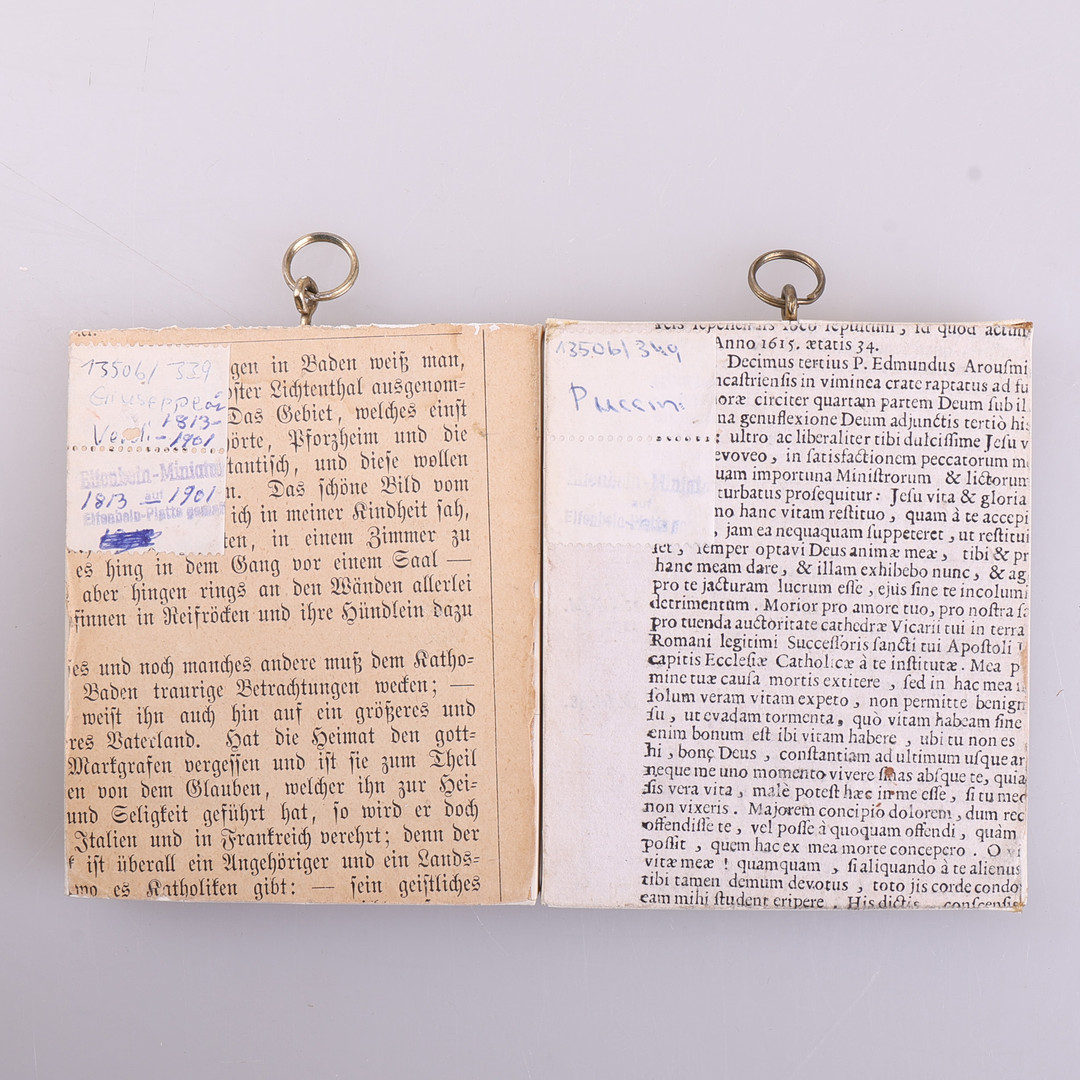 13506/339
Giuseppe
1813-
Verdi - 1901
Elfenbein-Miniatur
auf
1813 – 1901
Elfenbein-Platte gemalt
gen in Baden weiß man,
oster Lichtenthal ausgenom=
Das Gebiet, welches einst
örte, Pforzheim und die
tantisch, und diese wollen
n. Das schöne Bild vom
ich in meiner Kindheit sah,
ten, in einem Zimmer zu
es hing in dem Gang vor einem Saal —
aber hingen rings an den Wänden allerlei
finnen in Reifröcken und ihre Hündlein dazu
es und noch manches andere muß dem Katho=
Baden traurige Betrachtungen wecken; —
weist ihn auch hin auf ein größeres und
res Vaterland. Hat die Heimat den gott=
Markgrafen vergessen und ist sie zum Theil
en von dem Glauben, welcher ihn zur Hei=
und Seligkeit geführt hat, so wird er doch
Italien und in Frankreich verehrt; denn der
ist überall ein Angehöriger und ein Lands=
wo es Katholiken gibt: — sein geistliches
13506/349
Puccini
Elfenbein-Miniatur
auf
Elfenbein-Platte
loco sepultum, id quod
Anno 1615. ætatis 34.
Decimus tertius P. Edmundus Arousmi
ncastriensis in viminea crate raptatus ad fu
horæ circiter quartam partem Deum sub il
na genuflexione Deum adjunctis tertiò his
; ultro ac liberaliter tibi dulcissime Jesu v
evoveo, in satisfactionem peccatorum m
uam importuna Ministrorum & lictorum
turbatus prosequitur: Jesu vita & gloria
no hanc vitam restituo, quam à te accepi
, jam ea nequaquam suppeteret, ut restitui
set, semper optavi Deus animæ meæ, tibi & pr
hanc meam dare, & illam exhibebo nunc, & ag
pro te jacturam lucrum esse, ejus sine te incolumi
detrimentum. Morior pro amore tuo, pro nostra fa
pro tuenda auctoritate cathedræ Vicarii tui in terra
Romani legitimi Successoris sancti tui Apostoli
capitis Ecclesiæ Catholicæ à te institutæ. Mea p
mine tuæ causa mortis extitere, sed in hac mea
solum veram vitam expeto, non permitte benign
su, ut evadam tormenta, quò vitam habeam sine
enim bonum est ibi vitam habere, ubi tu non es
hi, bone Deus, constantiam ad ultimum usque ar
neque me uno momento vivere sinas absque te, quia
sis vera vita, malè potest hæc in me esse, si tu mec
non vixeris. Majorem concipio dolorem, dum rec
offendisse te, vel posse à quoquam offendi, quàm
possit, quem hac ex mea morte concepero. O
vitæ meæ! quamquam, si aliquando à te alienus
tibi tamen demum devotus, toto jis corde condo
eam mihi student eripere. His dictis, conscensis